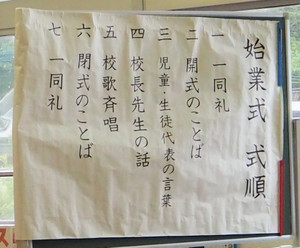 始業式 式順
一 一同礼
二 開式のことば
三 児童・生徒代表の言葉
四 校長先生の話
五 校歌斉唱
六 閉式のことば
七 一同礼